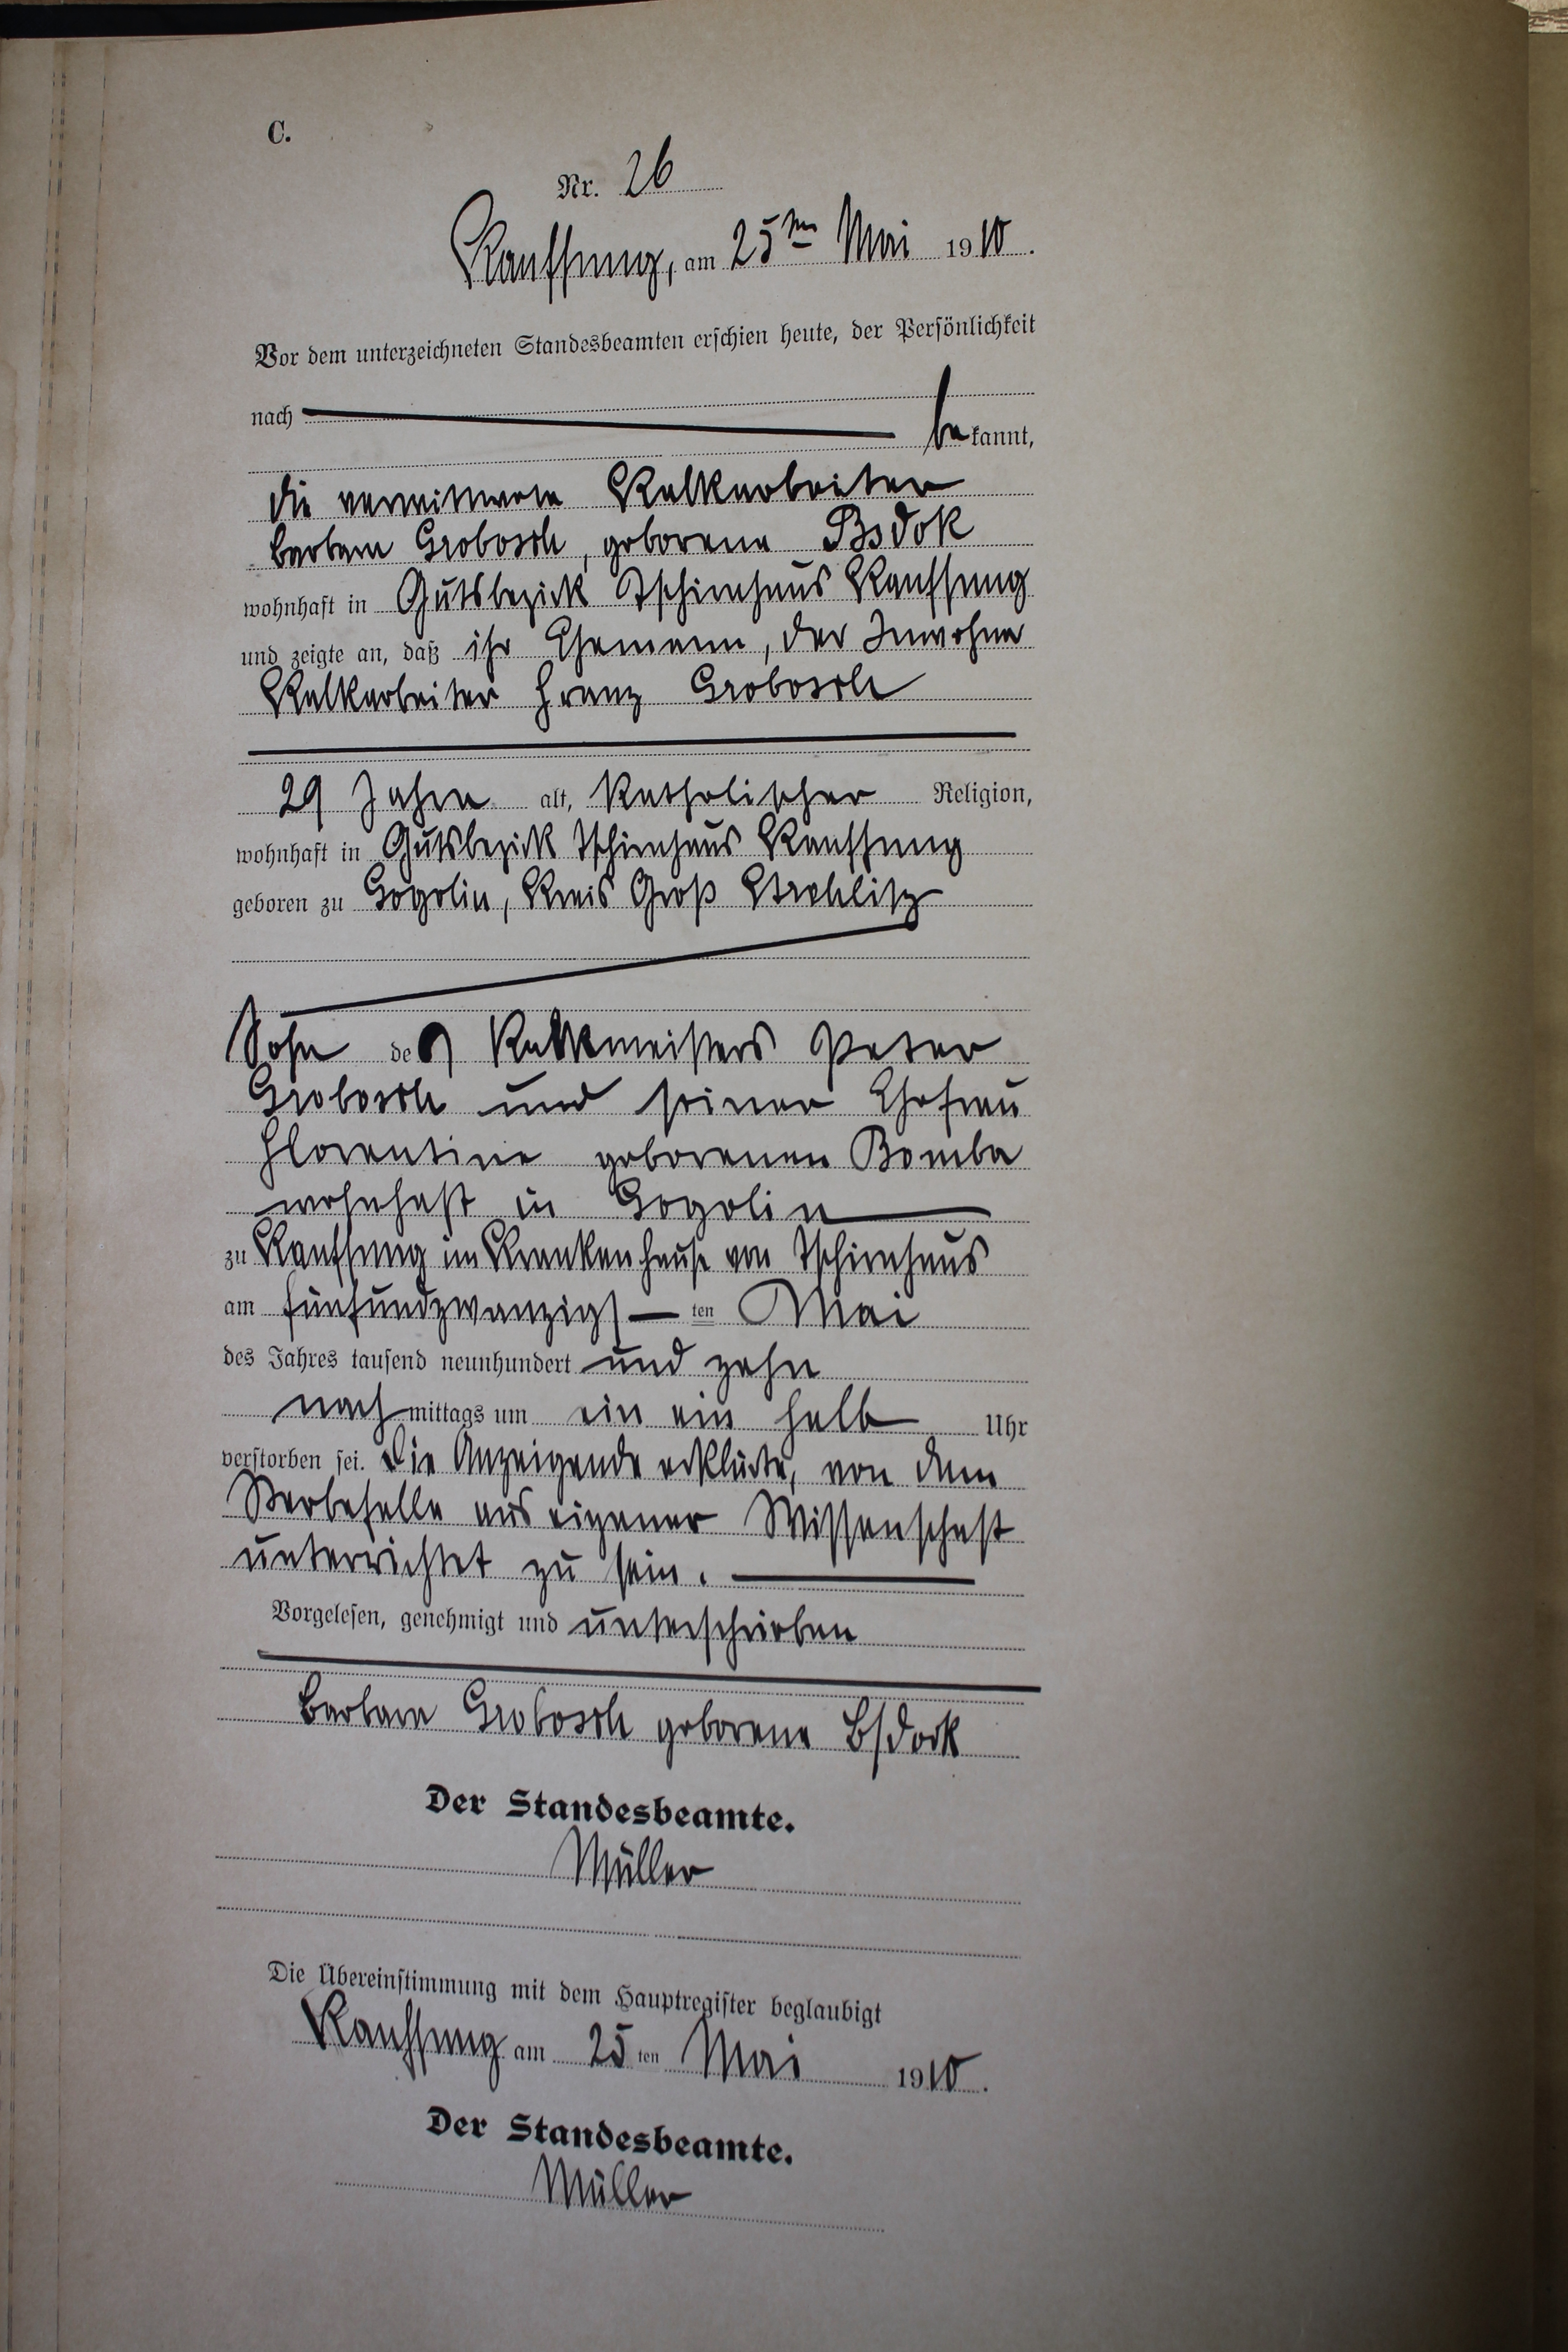 C.
Nr. 26
Kauffung, am 25ten Mai 1910.
Vor dem unterzeichneten Standesbeamten erschien heute, der Persönlichkeit
nach be kannt,
die verwitwete Kalkarbeiter
Barbara Grobosch, geborene Bsdok
wohnhaft in Gutsbezirk Tschirnhaus Kauffung
und zeigte an, daß ihr Ehemann, der Inwohner
Kalkarbeiter Franz Grobosch
29 Jahre alt, katholischer Religion,
wohnhaft in Gutsbezirk Tschirnhaus Kauffung
geboren zu Gogolin, Kreis Groß Strehlitz
Sohn des Kalkmeisters Peter
Grobosch und seiner Ehefrau
Florentine geborenen Bomba
wohnhaft in Gogolin
zu Kauffung im Krankenhause von Tschirnhaus
am fünfundzwanzigsten Mai
des Jahres tausend neunhundert und zehn
nachmittags um ein ein halb Uhr
verstorben sei. Die Anzeigende erklärte, von dem
Sterbefalle aus eigener Wissenschaft
unterrichtet zu sein.
Vorgelesen, genehmigt und unterschrieben
Barbara Grobosch geborene Bsdock
Der Standesbeamte.
Müller
Die Übereinstimmung mit dem Hauptregister beglaubigt
Kauffung am 25ten Mai 1910.
Der Standesbeamte.
Müller